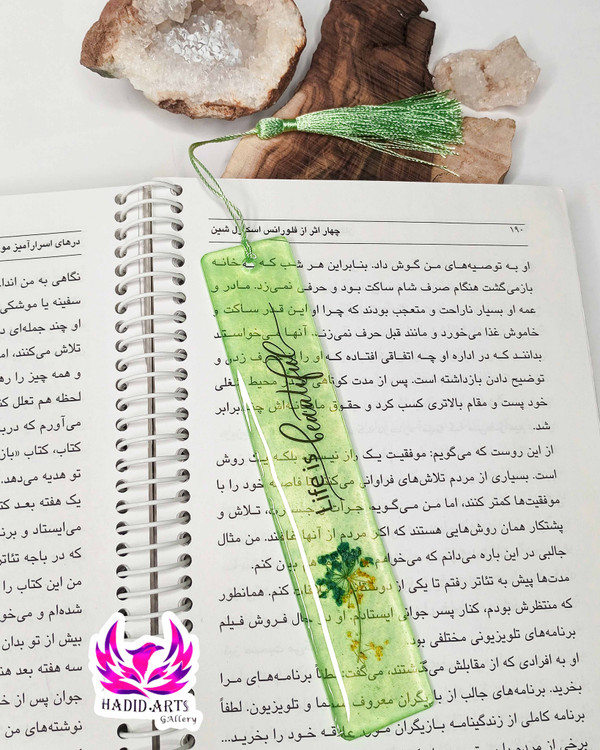 ۱۹۰
چهار اثر از فلورانس اسکاول شین
او به توصیه‌های من گوش داد. بنابراین هر شب که به خانه
بازمی‌گشت هنگام صرف شام ساکت بود و حرفی نمی‌زد. مادر و
عمه او بسیار ناراحت و متعجب بودند که چرا او این قدر ساکت و
خاموش غذا می‌خورد و مانند قبل حرف نمی‌زند. آنها می‌خواستند
بدانند که در اداره او چه اتفاقی افتاده که او را از حرف زدن و
توضیح دادن بازداشته است. پس از مدت کوتاهی محیط شغلی
خود پست و مقام بالاتری کسب کرد و حقوق ماهانه‌اش چند برابر
شد.
از این روست که می‌گویم: موفقیت یک راز نیست بلکه یک روش
است. بسیاری از مردم تلاش‌های فراوانی می‌کنند تا فاصله خود را با
موفقیت‌ها کمتر کنند، اما من می‌گویم جرات، جسارت، تلاش و
پشتکار همان روش‌هایی هستند که اکثر مردم از آنها غافلند. من مثال
جالبی در این باره می‌دانم که می‌خواهم بیان کنم.
مدت‌ها پیش به تئاتر رفتم تا یکی از دوستان ملاقات کنم. همانطور
که منتظرش بودم، کنار پسر جوانی ایستادم. او در حال فروش فیلم
برنامه‌های تلویزیونی مختلفی بود.
او به افرادی که از مقابلش می‌گذشتند، می‌گفت: لطفاً برنامه‌های مرا
بخرید. برنامه‌های جالب از بازیگران معروف سینما و تلویزیون. لطفاً
برنامه کاملی از زندگینامه بازیگران مورد علاقه خود را بخرید...
درهای اسرارآمیز مو
نگاهی به من اندا
سفینه یا موشکی
او چند جمله‌ای د
تلاش می‌کنند، اما
و همه چیز را رها
لحظه هم تعلل کن
می‌آورم که درب
کتاب، کتاب «باز
تو هدیه می‌دهد.
یک هفته بعد کتا
می‌ایستاد و برنا
که در باجه تئاتر
من این کتاب را
شده‌ام و می‌خوا
بیش از تو بدان
سه هفته بعد هن
جوان پس از خ
نوشته‌های من
Life is beautiful
HADID.ARTS
GAllery